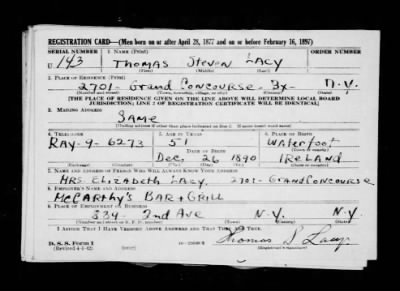 REGISTRATION CARD—(Men born on or after April 28, 1877 and on or before February 16, 1897)
SERIAL NUMBER 1. NAME (Print) ORDER NUMBER
U 143 THOMAS STEVEN LACY
(First) (Middle) (Last)
2. PLACE OF RESIDENCE (Print)
2701- Grand Concourse- Bx- N.Y.
(Number and street) (Town, township, village, or city) (County) (State)
[THE PLACE OF RESIDENCE GIVEN ON THE LINE ABOVE WILL DETERMINE LOCAL BOARD
JURISDICTION; LINE 2 OF REGISTRATION CERTIFICATE WILL BE IDENTICAL]
3. MAILING ADDRESS
SAME
[Mailing address if other than place indicated on line 2. If same insert word same]
4. TELEPHONE 5. AGE IN YEARS 6. PLACE OF BIRTH
RAY-9-6273 51 Waterfoot
DATE OF BIRTH (Town or county)
Dec. 26 1890 IRELAND
(Exchange) (Number) (Mo.) (Day) (Yr.) (State or country)
7. NAME AND ADDRESS OF PERSON WHO WILL ALWAYS KNOW YOUR ADDRESS
MRS. Elizabeth Lacy. 2701- GRAND CONCOURSE
8. EMPLOYER'S NAME AND ADDRESS
McCARTHY'S BAR + GRILL
9. PLACE OF EMPLOYMENT OR BUSINESS
834- 2nd AVE N.Y. N.Y.
(Number and street or R. F. D. number) (Town) (County) (State)
I AFFIRM THAT I HAVE VERIFIED ABOVE ANSWERS AND THAT THEY ARE TRUE.
D. S. S. Form 1
(Revised 4-1-42) (over) Thomas S Lacy
(Registrant's signature)